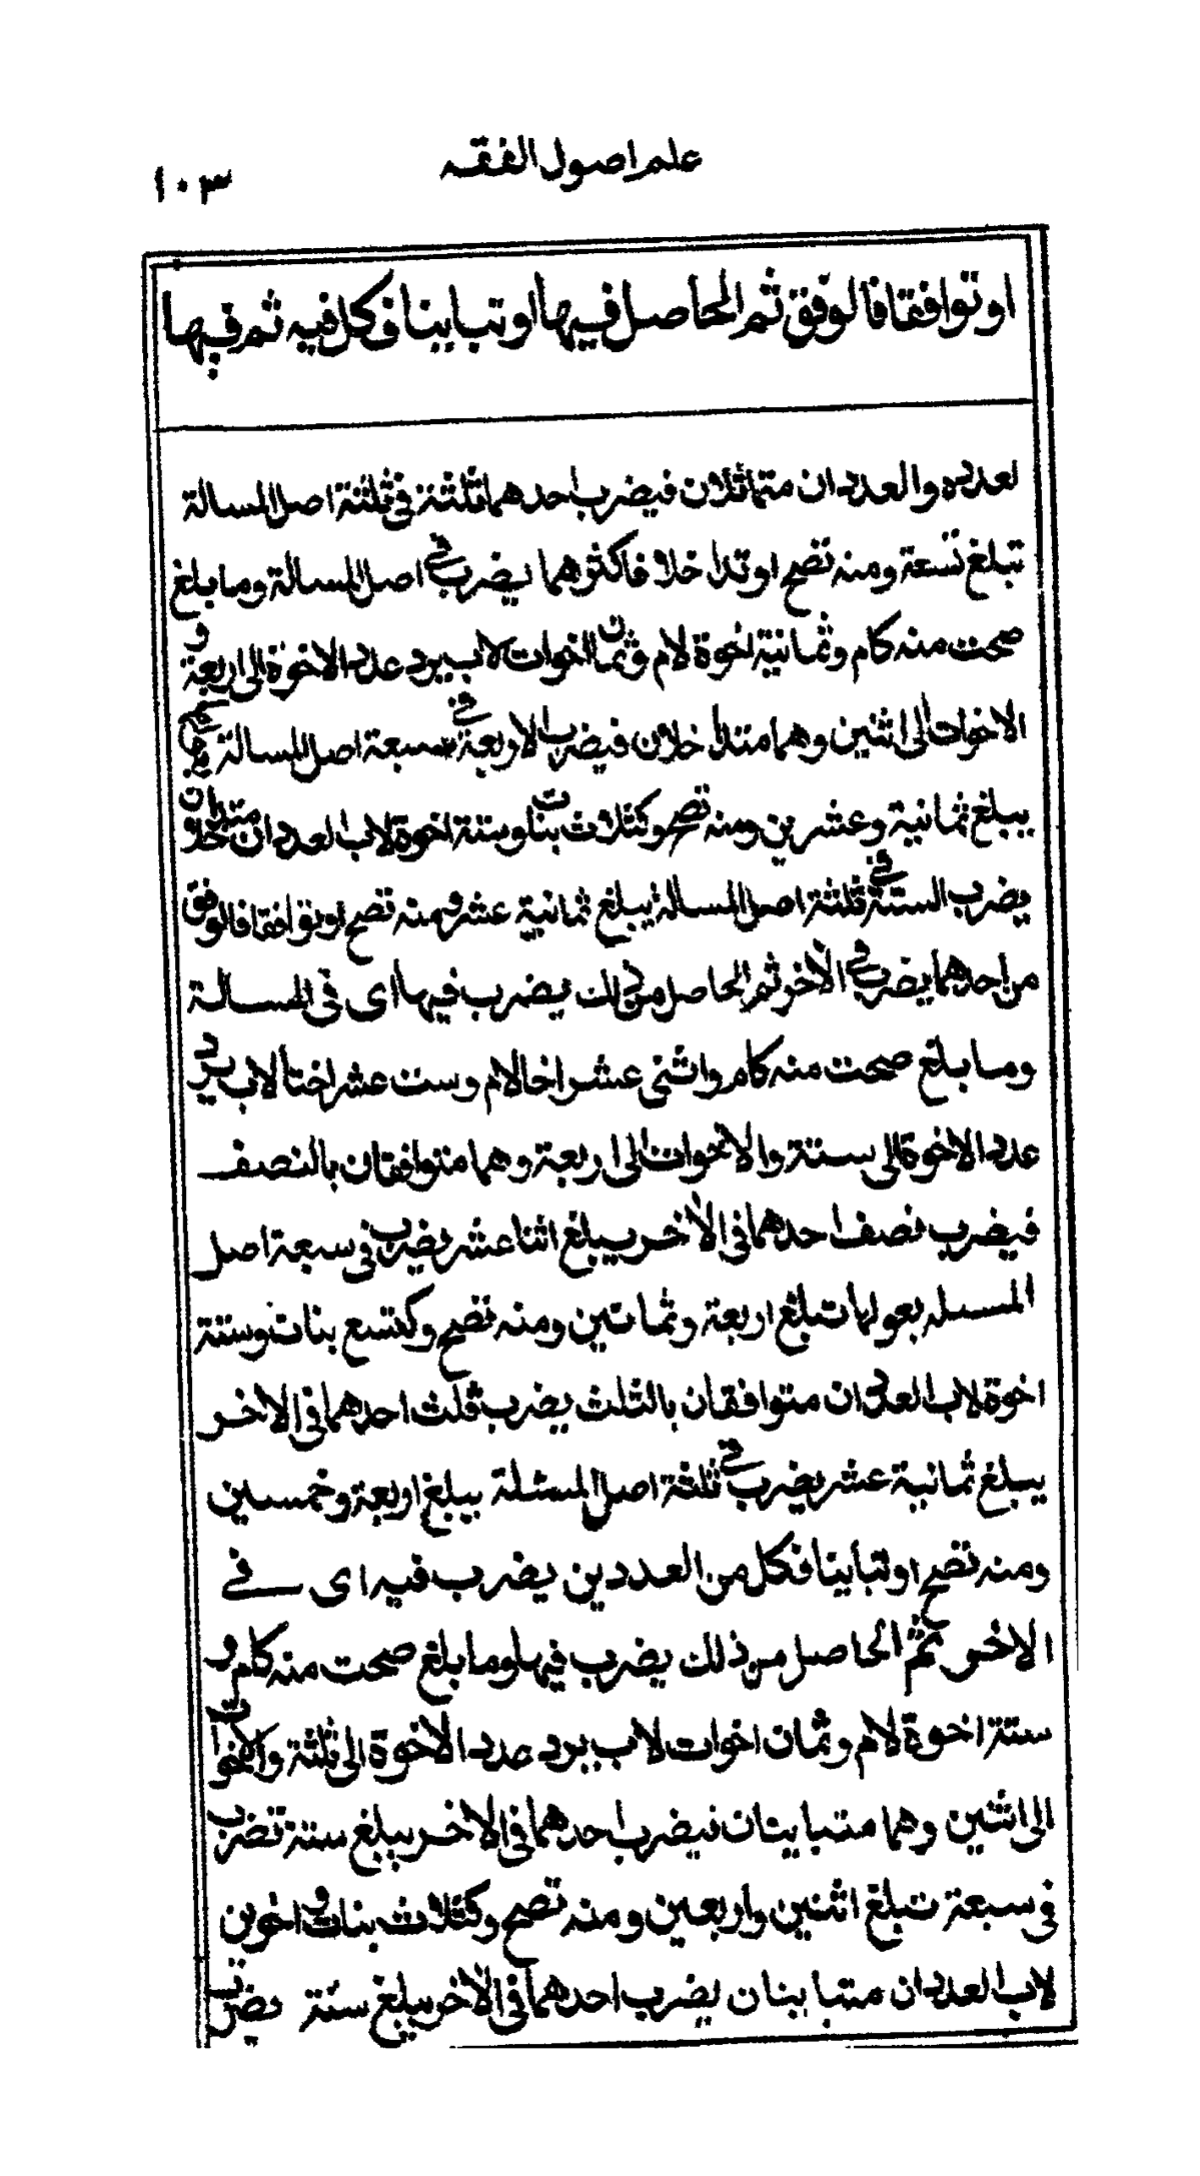 علم اصول الفقه
١٠٣
او توافقا فالوفق ثم الحاصل فيها او تباينا فكل فيه ثم فيها
لعدده والعددان متماثلان فيضرب احدهما ثلثة في ثلثة اصل المسالة
تبلغ تسعة ومنه تصح او تداخلا فاكثرهما يضرب في اصل المسالة وما بلغ
صحت منه كام وثمانية اخوة لام وثمان اخوات لاب يرد عدد الاخوة الى اربعة و
الاخوات الى اثنين وهما متداخلان فيضرب الاربعة في سبعة اصل المسالة
يبلغ ثمانية وعشرين ومنه تصح وكثلاث بنات وستة اخوة لاب العددان متداخلان
يضرب الستة في ثلثة اصل المسالة يبلغ ثمانية عشر ومنه تصح او توافقا فالوفق
من احدهما يضرب في الاخر ثم الحاصل من ذلك يضرب فيها اى فى المسالة
وما بلغ صحت منه كام واثنى عشر اخا لام وست عشر اختا لاب يرد
عدد الاخوة الى ستة والاخوات الى اربعة وهما متوافقان بالنصف
فيضرب نصف احدهما فى الاخر يبلغ اثنا عشر يضرب فى سبعة اصل
المسئله بعولها تبلغ اربعة وثمانين ومنه تصح وكتسع بنات وستة
اخوة لاب العددان متوافقان بالثلث يضرب ثلث احدهما فى الاخر
يبلغ ثمانية عشر يضرب في ثلثة اصل المسئلة يبلغ اربعة وخمسين
ومنه تصح او تباينا فكل من العددين يضرب فيه اى في
الاخر ثم الحاصل من ذلك يضرب فيها وما بلغ صحت منه كام و
ستة اخوة لام وثمان اخوات لاب يرد عدد الاخوة الى ثلثة والاخوات
الى اثنين وهما متباينان فيضرب احدهما فى الاخر يبلغ ستة تضرب
فى سبعة تبلغ اثنين واربعين ومنه تصح وكثلاث بنات و اخوين
لاب العددان متباينان يضرب احدهما فى الاخر يبلغ ستة يضرب